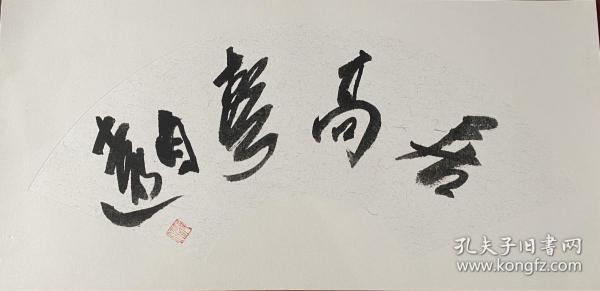 居高聲自遠
孔夫子旧书网
www.kongfz.com